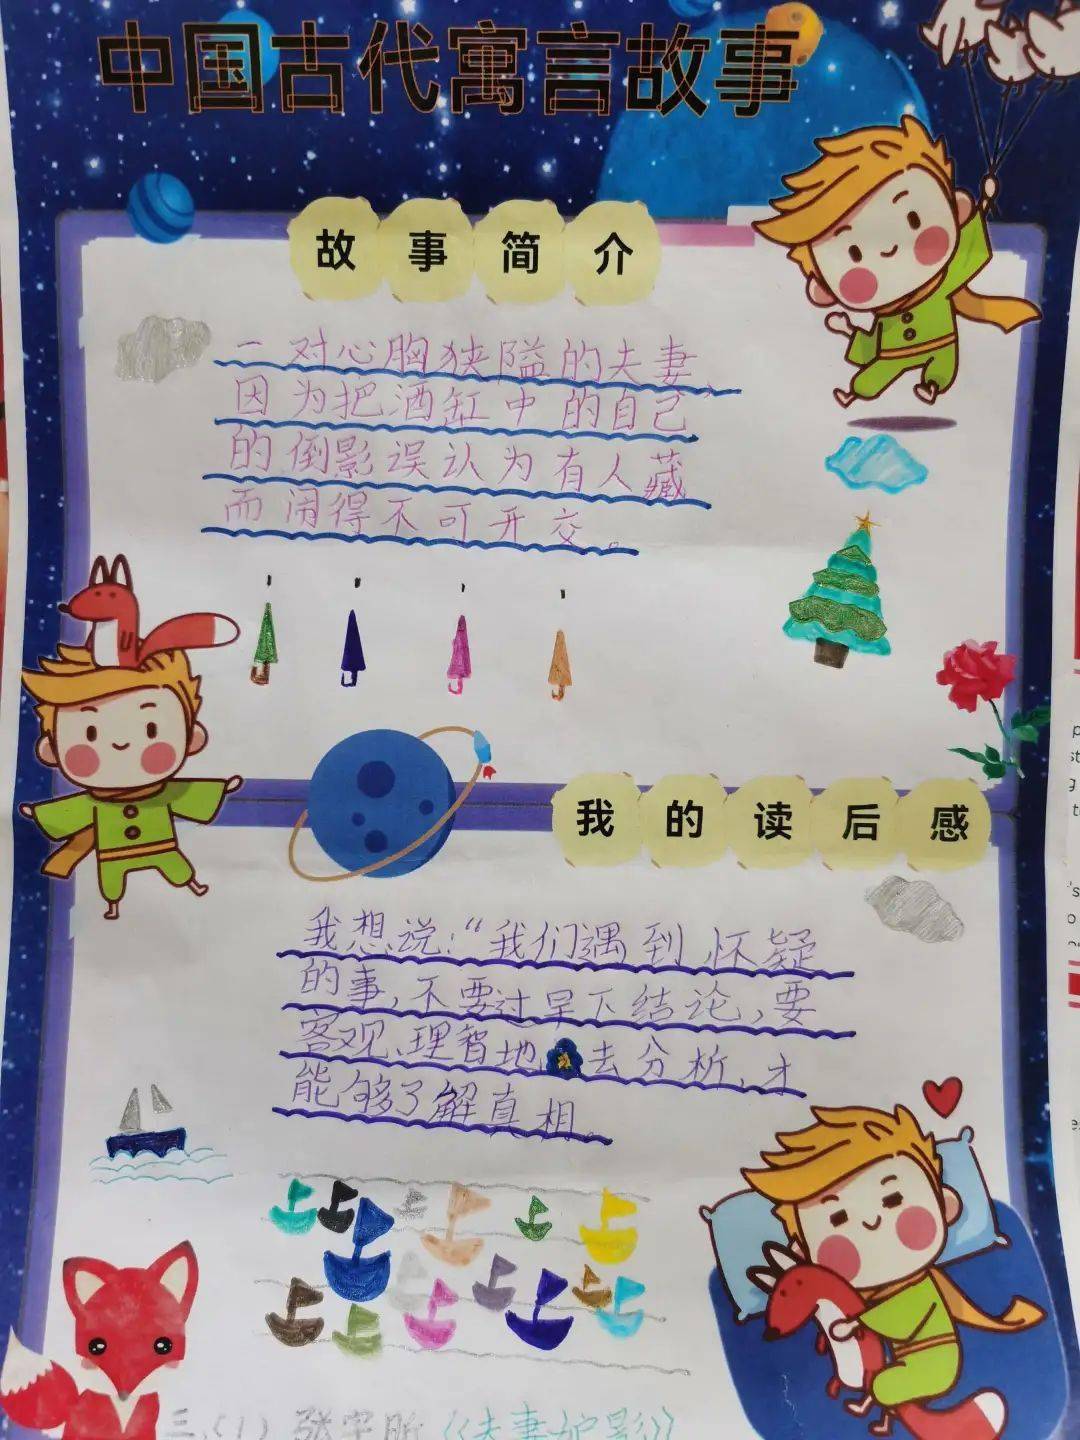 中国古代寓言故事
故事简介
一对心胸狭隘的夫妻,
因为把酒缸中的自己
的倒影误认为有人藏
而闹得不可开交。
我的读后感
我想说:“我们遇到怀疑
的事,不要过早下结论,要
客观、理智地去分析,才
能够了解真相。
三(1)张宇昕《夫妻妒影》